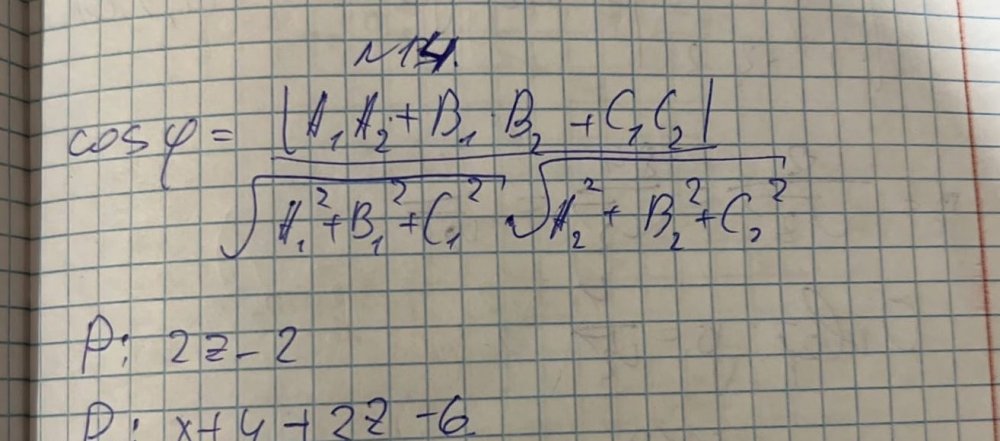 №14.
cos φ = |A₁A₂ + B₁·B₂ + C₁C₂|
√A₁² + B₁² + C₁² · √A₂² + B₂² + C₂²
P: 2z - 2
P: x + y + 2z - 6